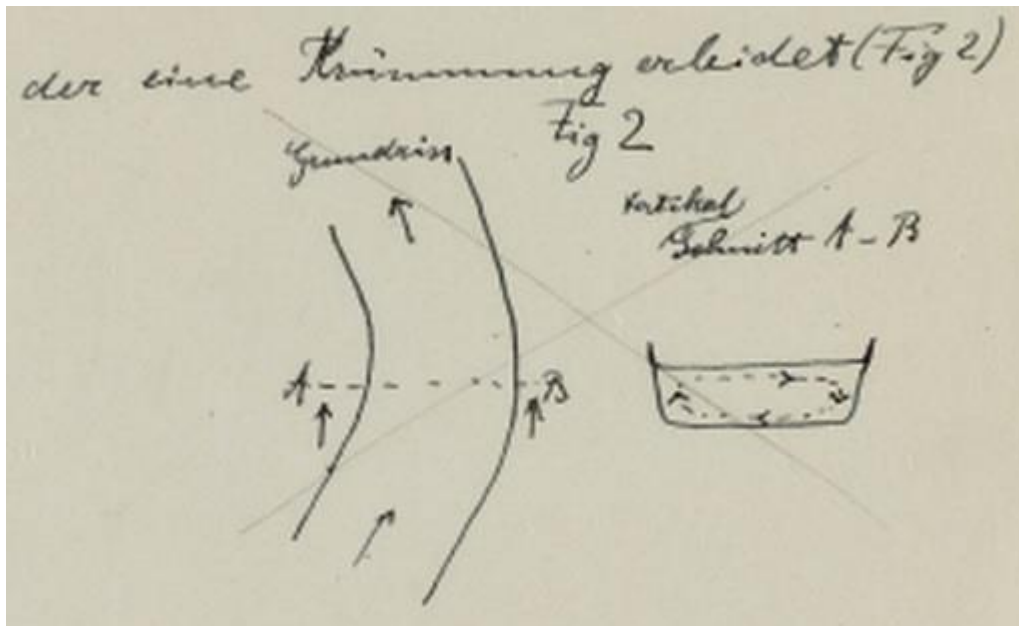 der eine Krümmung erleidet (Fig 2)
Fig 2
Grundriss
Vertikal
Schnitt A - B
A
B